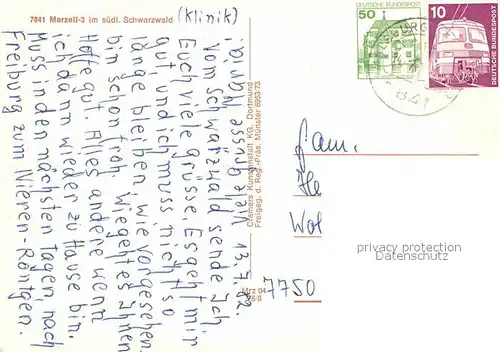 7841 Marzell-3 im südl. Schwarzwald
(Klinik)
13.7.82.
Vom Schwarzwald sende ich
Euch viele Grüsse. Es geht mir
gut und ich muss nicht so
lange bleiben, wie vorgesehen.
bin schon froh. Wie geht es Ihnen
Hoffe gut. Alles andere wenn
ich dann wieder zu Hause bin.
Muss in den nächsten Tagen, nach
Freiburg zum Nieren-Röntgen.
Cramers Kunstanstalt KG, Dortmund
Freigeg. d. Reg.-Präs. Münster 6953/73
Mrz 04
50
DEUTSCHE BUNDESPOST
10
DEUTSCHE BUNDESPOST
Fam.
He
Wol
7750
privacy protection
Datenschutz